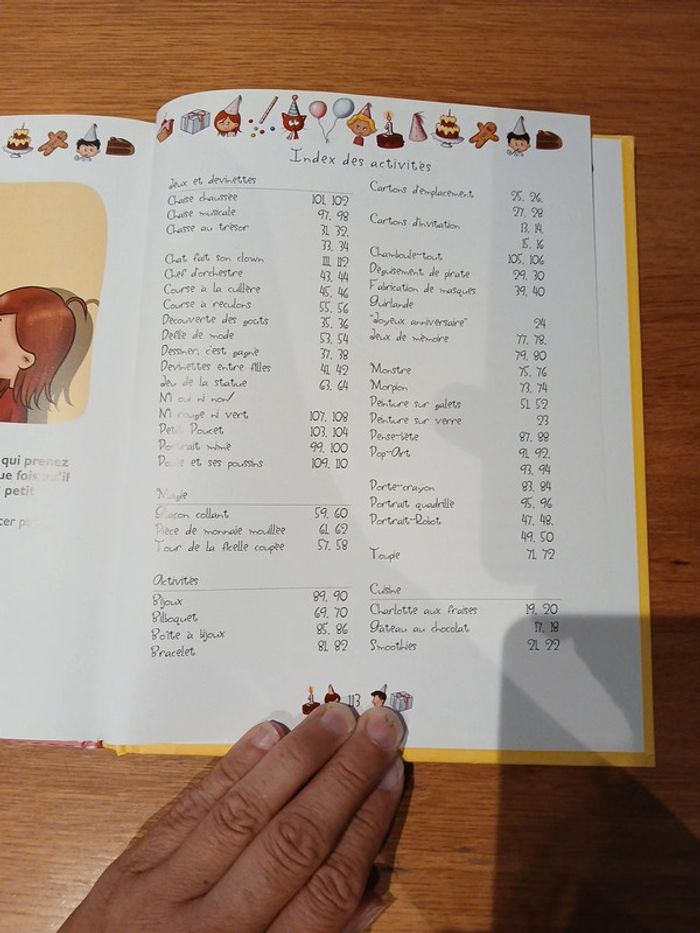 Index des activités
Jeux et devinettes
Chaise chaussée 101, 102
Chaise musicale 97, 98
Chasse au trésor 31, 32,
33, 34
Chat fait son clown 111, 112
Chef d'orchestre 43, 44
Course à la cuillère 45, 46
Course à reculons 55, 56
Découverte des goûts 35, 36
Défilé de mode 53, 54
Dessiner, c'est gagné 37, 38
Devinettes entre filles 41, 42
Jeu de la statue 63, 64
Ni oui ni non/
Ni rouge ni vert 107, 108
Petit Poucet 103, 104
Portrait mimé 99, 100
Poule et ses poussins 109, 110
Magie
Glaçon collant 59, 60
Pièce de monnaie mouillée 61, 62
Tour de la ficelle coupée 57, 58
Activités
Bijoux 89, 90
Bilboquet 69, 70
Boîte à bijoux 85, 86
Bracelet 81, 82
Cartons d'emplacement 25, 26,
27, 28
Cartons d'invitation 13, 14,
15, 16
Chamboule-tout 105, 106
Déguisement de pirate 29, 30
Fabrication de masques 39, 40
Guirlande
"Joyeux anniversaire" 24
Jeux de mémoire 77, 78,
79, 80
Monstre 75, 76
Morpion 73, 74
Peinture sur galets 51, 52
Peinture sur verre 23
Pense-bête 87, 88
Pop-Art 91, 92,
93, 94
Porte-crayon 83, 84
Portrait quadrillé 95, 96
Portrait-Robot 47, 48,
49, 50
Toupie 71, 72
Cuisine
Charlotte aux fraises 19, 20
Gâteau au chocolat 17, 18
Smoothies 21, 22
113
qui prenez
ue fois qu'il
petit